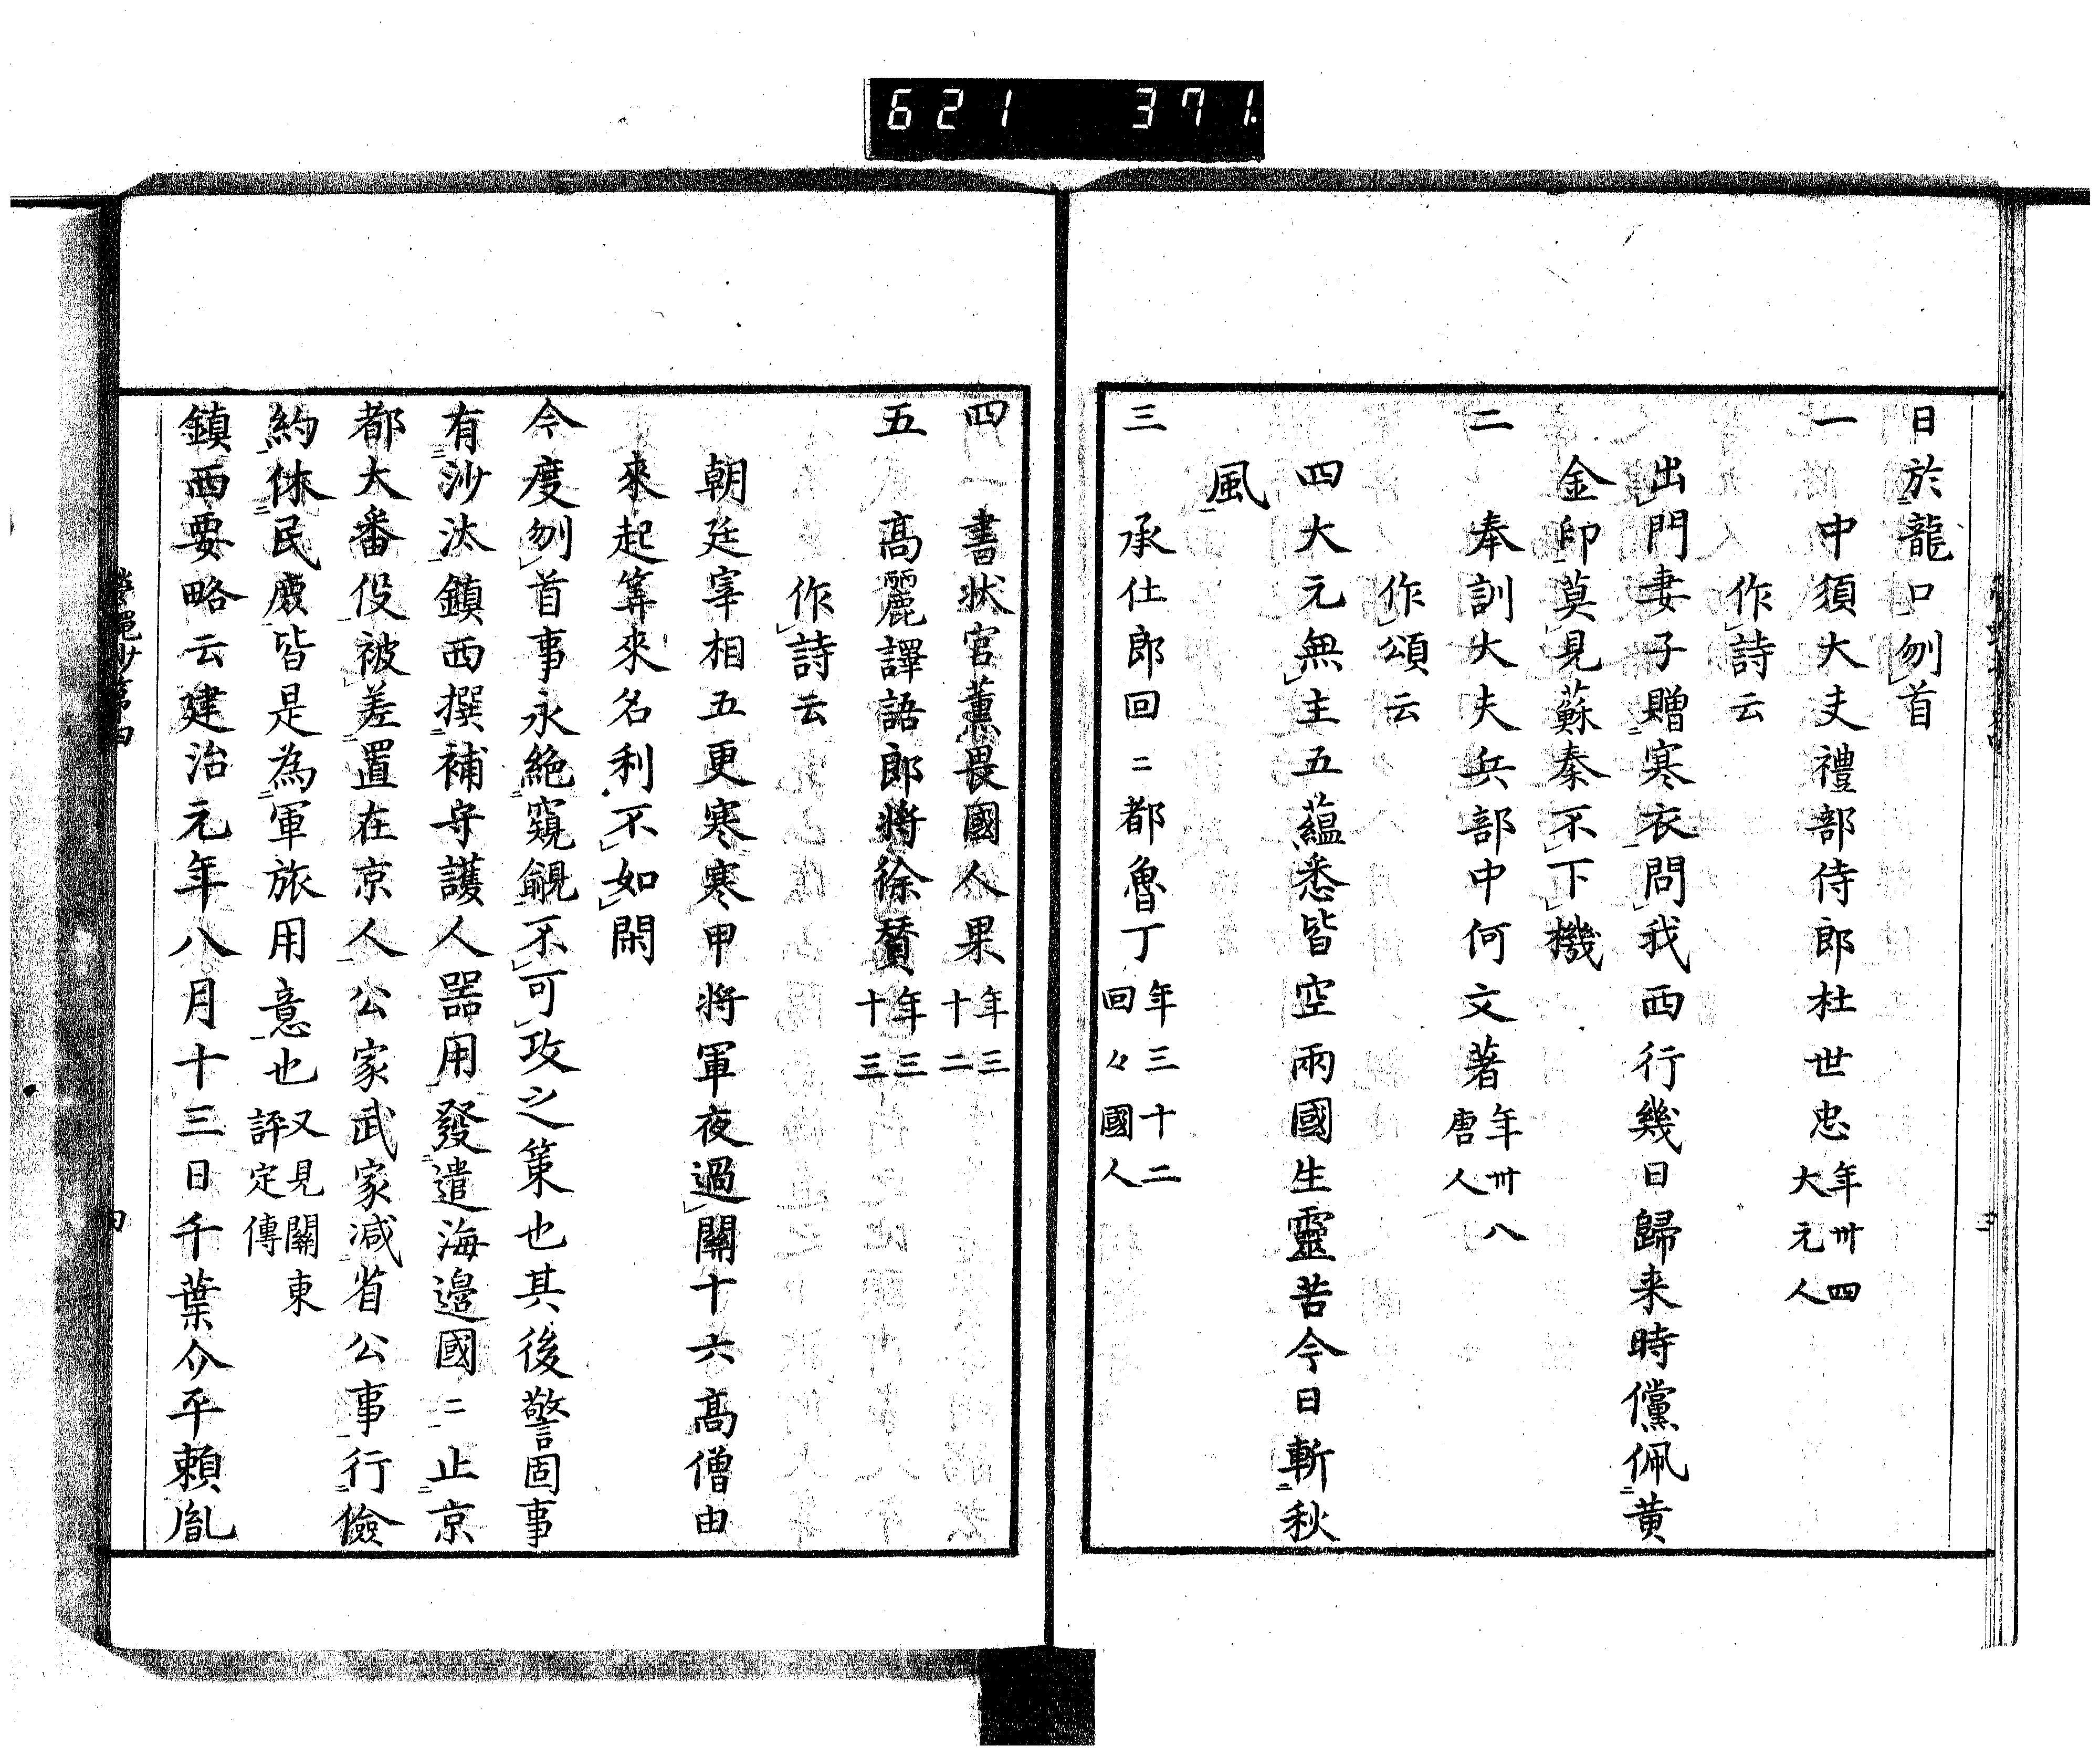 621 371.
日於龍口刎首
一 中須大夫禮部侍郎杜世忠 年卅四 大元人
作詩云
出門妻子贈寒衣問我西行幾日歸来時儻佩黄
金印莫見蘇秦不下機
二 奉訓大夫兵部中何文著 年卅八 唐人
作頌云
四大元無主五蘊悉皆空兩國生靈苦今日斬秋
風
三 承仕郎回二都魯丁 年三十二 回々國人
四 書状官薫畏國人果 年三十二
五 高麗譯語郎將徐賛 年三十三
作詩云
朝廷宰相五更寒寒甲將軍夜過關十六高僧由
來起筭來名利不如閑
今度刎首事永絶窺覦不可攻之策也其後警固事
有沙汰鎮西撰補守護人器用發遣海邉國二止京
都大番役被差置在京人公家武家減省公事行儉
約休民庻皆是為軍旅用意也 又見關東 評定傳
鎮西要略云建治元年八月十三日千葉介平頼胤
螢蠅抄第四
四